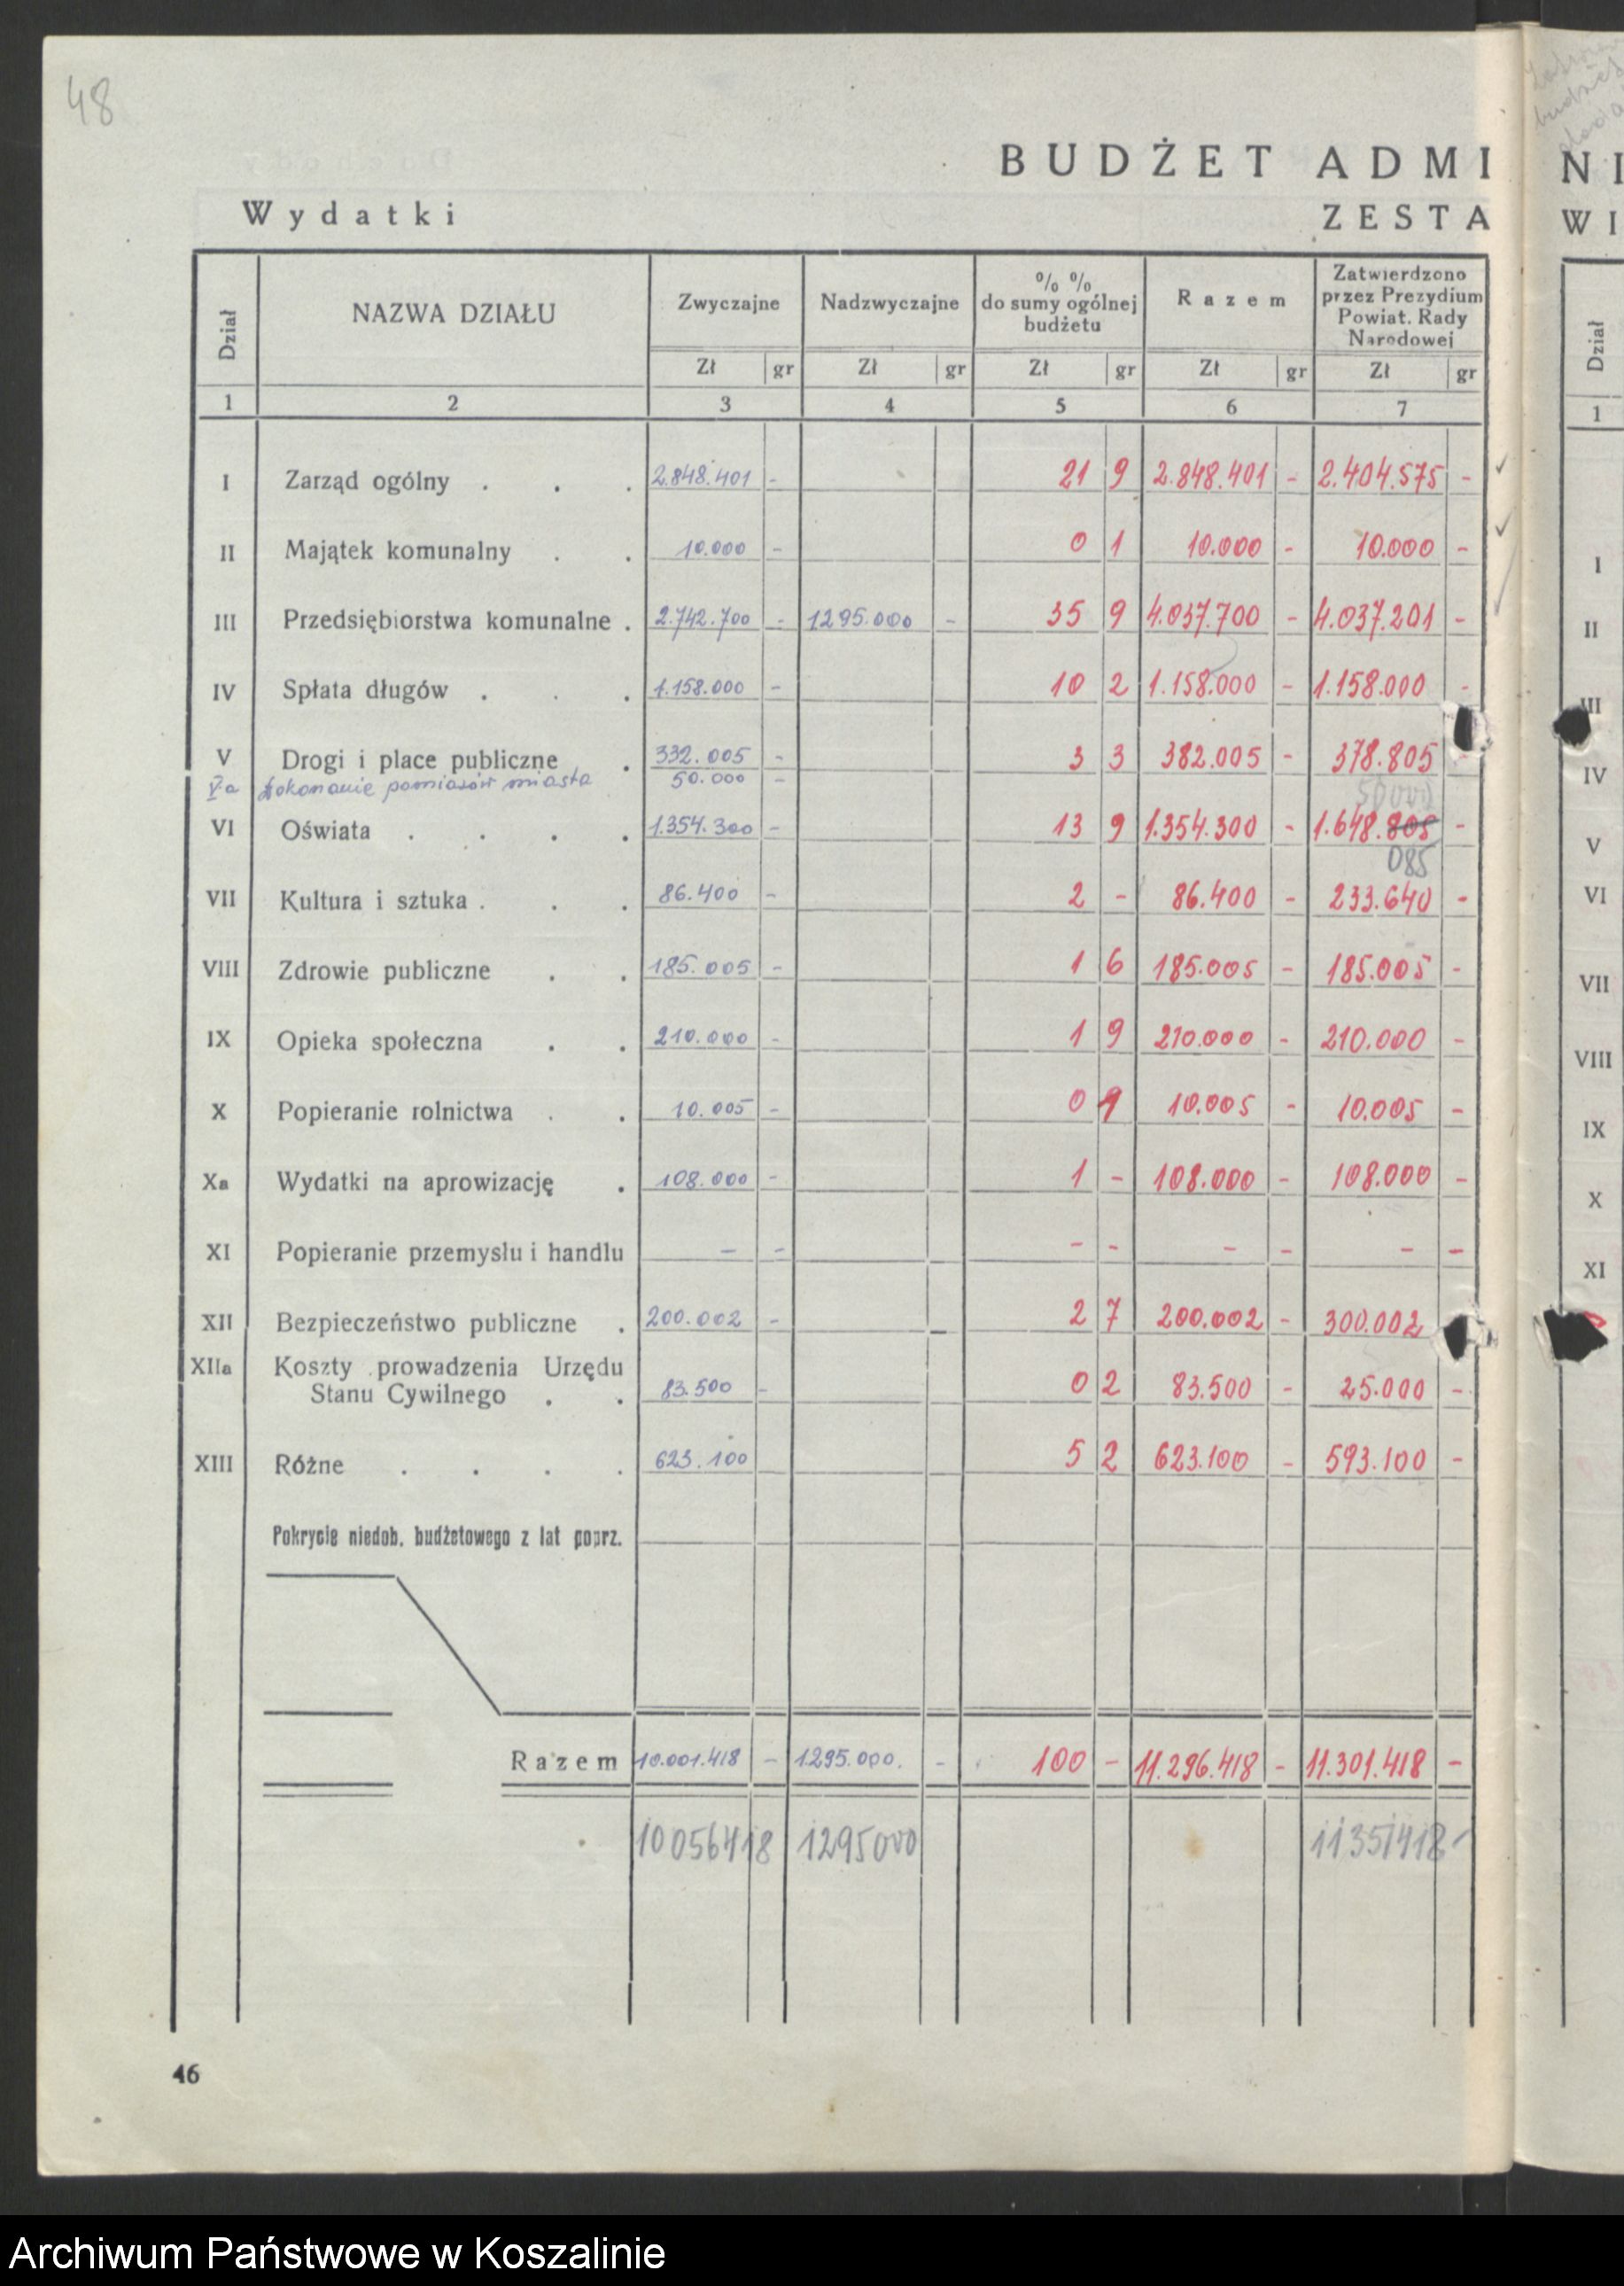 48
BUDŻET ADMI
Wydatki
ZESTA
Dział | NAZWA DZIAŁU | Zwyczajne | Nadzwyczajne | % % do sumy ogólnej budżetu | Razem | Zatwierdzono przez Prezydium Powiat. Rady Narodowej
Zł | gr | Zł | gr | Zł | gr | Zł | gr | Zł | gr
1 | 2 | 3 | 4 | 5 | 6 | 7
I | Zarząd ogólny . . . | 2.848.401 | - | 21 | 9 | 2.848.401 | - | 2.404.575 | -
II | Majątek komunalny . . | 10.000 | - | 0 | 1 | 10.000 | - | 10.000 | -
III | Przedsiębiorstwa komunalne . | 2.742.700 | - | 1295.000 | - | 35 | 9 | 4.037.700 | - | 4.037.201 | -
IV | Spłata długów . . . | 1.158.000 | - | 10 | 2 | 1.158.000 | - | 1.158.000 | -
V | Drogi i place publiczne . | 332.005 | - | 3 | 3 | 382.005 | - | 378.805
V a | dokonanie pomiarów miasta | 50.000 | - | 50000
VI | Oświata . . . . | 1.354.300 | - | 13 | 9 | 1.354.300 | - | 1.648.805 | -
085
VII | Kultura i sztuka . . . | 86.400 | - | 2 | - | 86.400 | - | 233.640 | -
VIII | Zdrowie publiczne . . | 185.005 | - | 1 | 6 | 185.005 | - | 185.005 | -
IX | Opieka społeczna . . | 210.000 | - | 1 | 9 | 210.000 | - | 210.000 | -
X | Popieranie rolnictwa . . | 10.005 | - | 0 | 1 | 10.005 | - | 10.005 | -
Xa | Wydatki na aprowizację . | 108.000 | - | 1 | - | 108.000 | - | 108.000 | -
XI | Popieranie przemysłu i handlu | - | - | - | - | - | - | - | -
XII | Bezpieczeństwo publiczne . | 200.002 | - | 2 | 7 | 200.002 | - | 300.002
XIIa | Koszty prowadzenia Urzędu
Stanu Cywilnego . . | 83.500 | - | 0 | 2 | 83.500 | - | 25.000 | -
XIII | Różne . . . . | 623.100 | 5 | 2 | 623.100 | - | 593.100 | -
Pokrycie niedob. budżetowego z lat poprz.
Razem | 10.001.418 | - | 1295.000. | - | 100 | - | 11.296.418 | - | 11.301.418 | -
10056418 | 1295000 | 11351418 -
46
NI
WI
Dział
1
I
II
III
IV
V
VI
VII
VIII
IX
X
XI
Archiwum Państwowe w Koszalinie